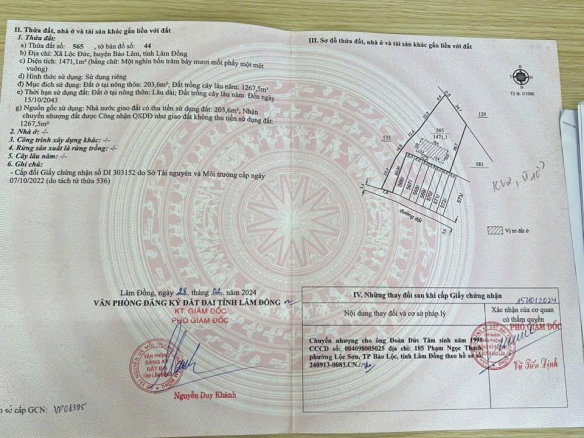 II. Thửa đất, nhà ở và tài sản khác gắn liền với đất
1. Thửa đất:
a) Thửa đất số: 565, tờ bản đồ số: 44
b) Địa chỉ: Xã Lộc Đức, huyện Bảo Lâm, tỉnh Lâm Đồng
c) Diện tích: 1471,1m² (bằng chữ: Một nghìn bốn trăm bảy mươi mốt phẩy một mét
vuông)
d) Hình thức sử dụng: Sử dụng riêng
đ) Mục đích sử dụng: Đất ở tại nông thôn: 203,6m²; Đất trồng cây lâu năm: 1267,5m²
e) Thời hạn sử dụng: Đất ở tại nông thôn: Lâu dài; Đất trồng cây lâu năm: Đến ngày
15/10/2043
g) Nguồn gốc sử dụng: Nhà nước giao đất có thu tiền sử dụng đất: 203,6m²; Nhận
chuyển nhượng đất được Công nhận QSDĐ như giao đất không thu tiền sử dụng đất:
1267,5m²
2. Nhà ở: -/-
3. Công trình xây dựng khác: -/-
4. Rừng sản xuất là rừng trồng: -/-
5. Cây lâu năm: -/-
6. Ghi chú:
- Cấp đổi Giấy chứng nhận số DI 303152 do Sở Tài nguyên và Môi trường cấp ngày
07/10/2022 (do tách từ thửa 536)
Lâm Đồng, ngày 28 tháng năm 2024
VĂN PHÒNG ĐĂNG KÝ ĐẤT ĐAI TỈNH LÂM ĐỒNG
KT. GIÁM ĐỐC
PHÓ GIÁM ĐỐC
VĂN PHÒNG
ĐĂNG KÝ
ĐẤT ĐAI
TỈNH LÂM ĐỒNG
Nguyễn Duy Khánh
sổ cấp GCN: VP08395
III. Sơ đồ thửa đất, nhà ở và tài sản khác gắn liền với đất
Tỷ lệ: 1/1000
129
535
565
1471,1
581
566
573
đường đất
Vị trí đất ở
IV. Những thay đổi sau khi cấp Giấy chứng nhận
Nội dung thay đổi và cơ sở pháp lý
Xác nhận của cơ quan
có thẩm quyền
Chuyển nhượng cho ông Đoàn Đức Tâm sinh năm 1998
CCCD số: 004098005025 địa chỉ: 185 Phạm Ngọc Thạch,
phường Lộc Sơn, TP Bảo Lộc, tỉnh Lâm Đồng theo hồ sơ số
240913-0083.CN
PHÓ GIÁM ĐỐC
Vũ Tiến Định